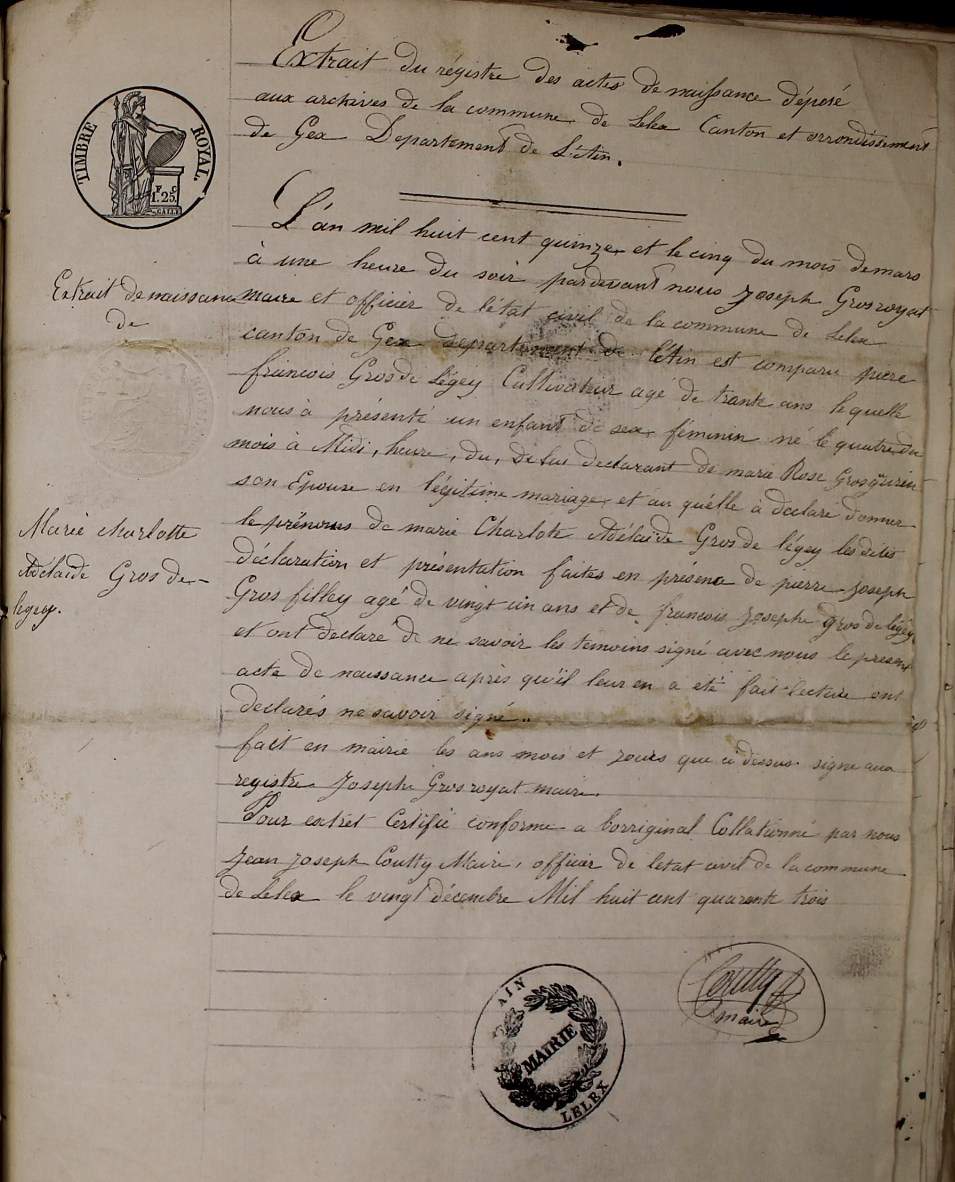 Extrait du régistre des actes de naissance déposé
aux archives de la commune de Lelex Canton et arrondissement
de Gex Departement de L'Ain.
TIMBRE ROYAL.
F. C.
1.25
L'án mil huit cent quinze et le cinq du mois de mars
à une heure du soir pardevant nous Joseph Grosroyat
Extrait de naissance
de
Marie charlotte
Adélaide Gros de
legey.
maire et officier de l'état civil de la commune de Lelex
canton de Gex Departement de l'Ain est comparu pierre
francois Gros de Légey Cultivateur agé de trante ans lequelle
nous à présenté un enfant de sex féminin né le quatre du
mois à Midi, heure, du, de lui declarant de marie Rose Grosgurin
son Epouse en légitime mariage et au quélle à déclare donner
le prénoms de marie Charlote Adélaide Gros de légey les dites
déclaration et présentation faites en présence de pierre Joseph
Gros filley agé de vingt un ans et de francois Joseph Gros de légey
et ont declaré de ne savoir les temoins signé avec nous le present
acte de naissance après qu'il leur en a eté fait lecture ont
declarés ne savoir signé..
fait en mairie les ans mois et jours que ci dessus signe aux
registre Joseph Grosroyat maire.
Pour extret Certifié conforme a l'orriginal Collationné par nous
Jean Joseph Coutty Maire, officier de l'etat civil de la commune
de Lelex le vingt décembre Mil huit cent quarente trois
Coutty
maire
AIN
MAIRIE
LELEX